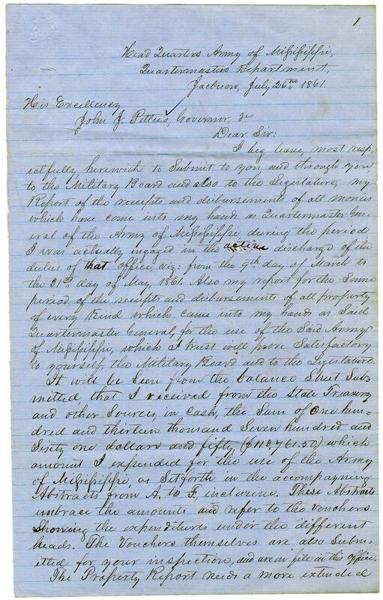 1
Head Quarters Army of Mississippi,
Quartermasters Department,
Jackson, July 26th 1861.
His Excellency
John J Pettus, Governor, &c
Dear Sir:
I beg leave, most resp-
ectfully herewith to Submit to you, and through you
to the Military Board and also to the Legislature, my
Report of the receipts and disbursements of all monies
which have come into my hands as Quartermaster Gen-
eral of the Army of Mississippi, during the period
I was actually engaged in the active discharge of the
duties of that office, viz: from the 9th day of March to
the 21st day of May 1861. Also my report for the Same
period of the receipts and disbursements of all property
of every kind which came into my hands as Said
Quartermaster General for the use of the Said Army
of Mississippi, which I trust will prove Satisfactory
to yourself, the Military Board and to the Legislature.
It will be Seen from the balance Sheet Sub-
mitted, that I received from the State Treasury
and other Sources, in Cash, the Sum of One hun-
dred and thirteen thousand Seven hundred and
Sixty one dollars and fifty ($113,761.50) which
amount I expended for the use of the Army
of Mississippi, as Setforth in the accompanying
Abstracts from A. to F. inclusive. These Abstracts
embrace the amounts and refer to the vouchers
Showing the expenditures under the different
heads. The Vouchers themselves are also Subm-
itted for your inspection, and are on file in the office.
The Property Report needs a more extended